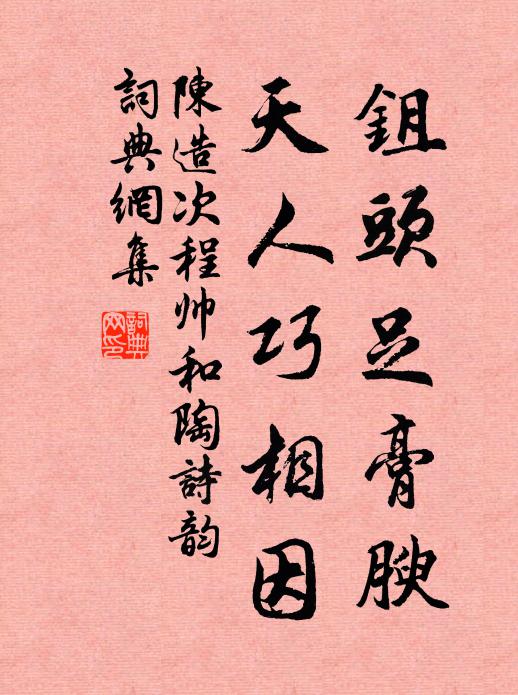 鉏頭足膏腴
天人巧相因
陳造次程帅和陶詩韵
詞典網集
詞典
网印